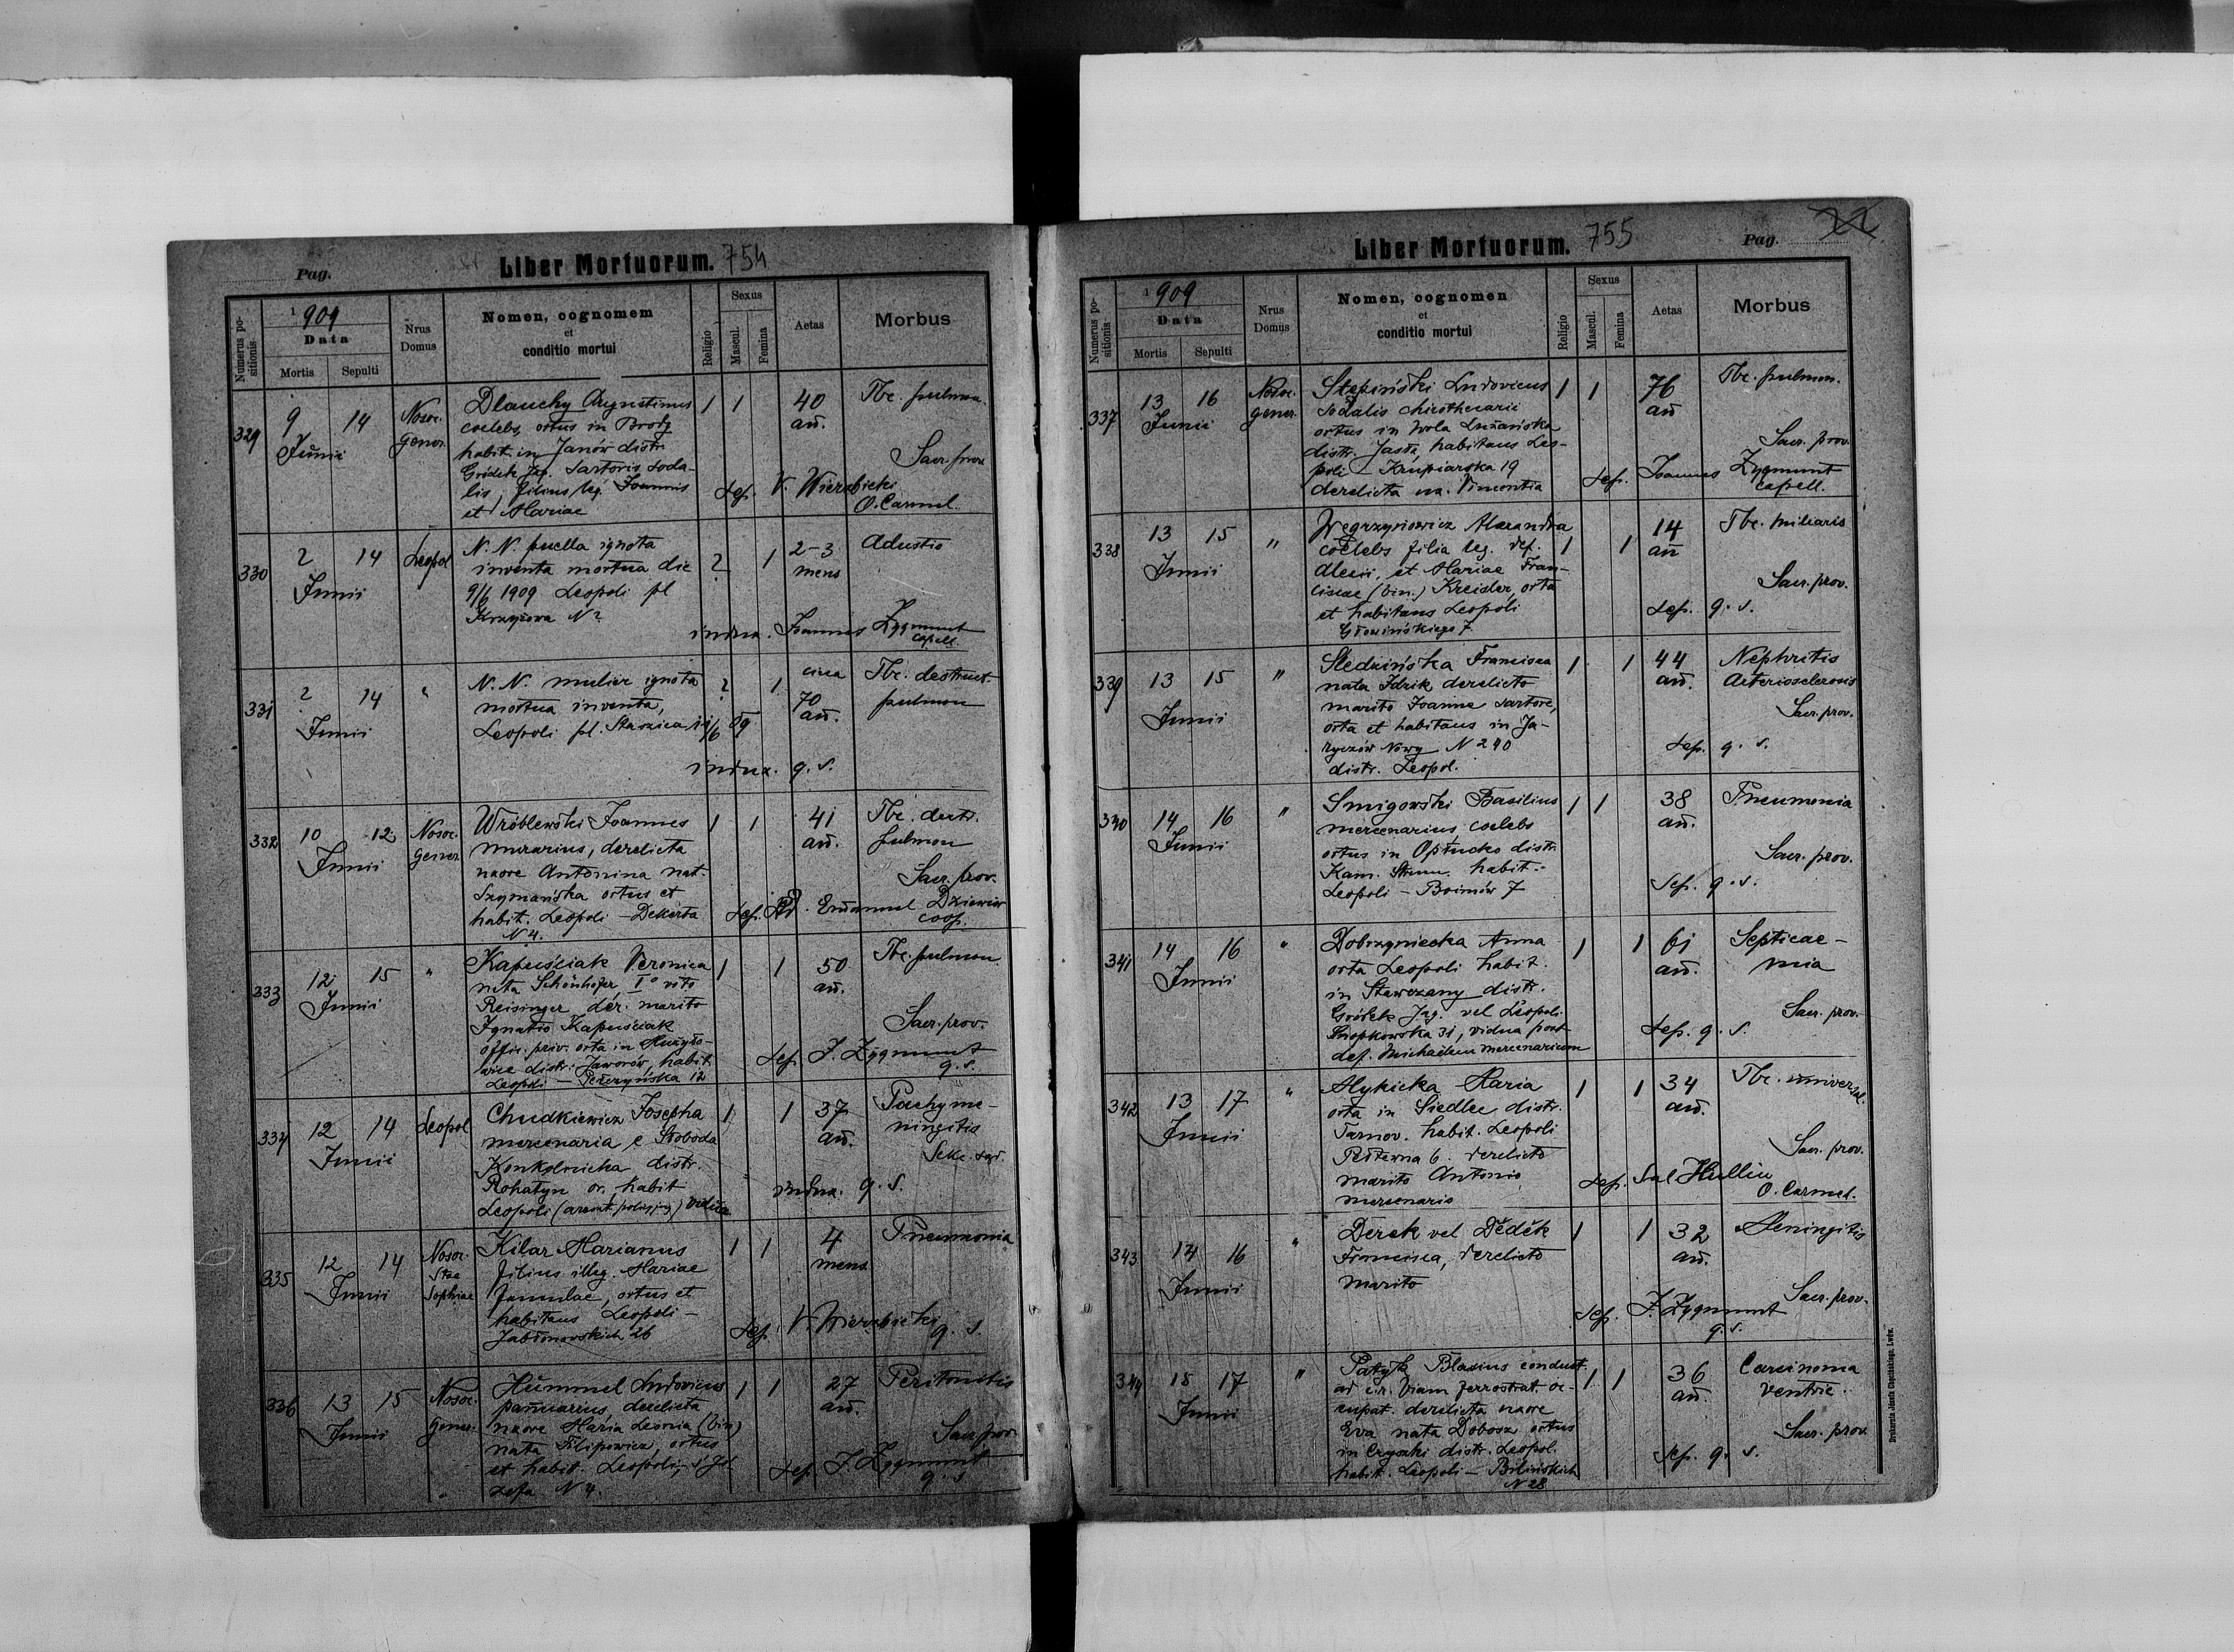 Pag.
Liber Mortuorum. 754
Numerus positionis
1909
Data
Mortis
Sepulti
Nrus Domus
Nomen, cognomem
et
conditio mortui
Religio
Sexus
Mascul.
Femina
Aetas
Morbus
329 9 14 Junii Nosoc. gener.
Dlauchy Augustinus 1 1 40 an̄. Tbc. pulmon.
coelebs, ortus in Brody
habit. in Janów distr.
Gródek Jag. sartoris soda-
lis, filius leg. Joannis
et Mariae
Sacr. prov.
sep. V. Wierzbicki
O. Carmel.
330 ? 14 Junii Leopol
N. N. puella ignota ? 1 2-3 mens Adustio
inventa mortua die
9/6 1909 Leopoli pl
Krzyżowa N?
indux. Joannes Zygmunt
capell.
331 ? 14 Junii "
N. N. mulier ignota ? 1 circa 70 an̄. Tbc. destruct. pulmon
mortua inventa,
Leopoli pl. Staszica 11/6 09
indux. q. s.
332 10 12 Junii Nosoc. gener
Wróblewski Joannes 1 1 41 an̄. Tbc. destr. pulmon
murarius, derelicta
uxore Antonina nat.
Szymańska ortus et
habit. Leopoli - Dekerta
N 4.
Sacr. prov.
sep. Emanuel Dziewior
coop.
333 12 15 Junii "
Kapuściak Veronica 1 1 50 an̄. Tbc. pulmon.
nata Schönhofer I° voto
Reisinger der. marito
Ignatio Kapuściak
offic. priv. orta in
distr. Jaworów, habit
Leopoli - Pełczyńska 12
Sacr. prov.
sep. J. Zygmunt
q. s.
334 12 14 Junii Leopol
Chudkiewicz Josepha 1 1 37 an̄. Pachyme-
ningitis
mercenaria e Słoboda
Konkolnicka distr.
Rohatyn or. habit
Leopoli (areszt. policyjny) vidua
indux. q. s.
335 12 14 Junii Nosoc. Stae Sophiae
Kilar Marianus 1 1 4 mens Pneumonia
filius illeg. Mariae
famulae, ortus et
habitans Leopoli -
Jabłonowskich 26
sep. V. Wierzbicki
q. s.
336 13 15 Junii Nosoc. gener.
Hummel Ludovicus 1 1 27 an̄. Peritonitis
pannarius, derelicta
uxore Maria Leonia (bin)
nata Filipowicz, ortus
et habit. Leopoli, S. Jó-
zefa N 4.
Sacr. prov.
sep. J. Zygmunt
q. s.
Liber Mortuorum. 755
Pag.
Numerus positionis
1909
Data
Mortis
Sepulti
Nrus Domus
Nomen, cognomen
et
conditio mortui
Religio
Sexus
Mascul.
Femina
Aetas
Morbus
337 13 16 Junii Nosoc. gener.
Stępiński Ludovicus 1 1 76 an̄ Tbc. pulmon.
sodalis chirothecarii
ortus in Wola Lużańska
distr. Jasła, habitans Leo-
poli - Krupiarska 19
derelicta ux. Vincentia
Sacr. prov.
sep. Joannes Zygmunt
capell.
338 13 15 Junii "
Węgrzynowicz Alexandra 1 1 14 an̄ Tbc. miliaris
coelebs filia leg. def.
Alexii, et Mariae Fran-
ciscae (bin.) Kreider, orta
et habitans Leopoli
Głowińskiego 7
Sacr. prov.
sep. q. s.
339 13 15 Junii "
Śledzińska Francisca 1 1 44 an̄. Nephritis
Arteriosclerosis
nata Idzik derelicto
marito Joanne sartore,
orta et habitans in Ja-
ryczów Nowy N 240
distr. Leopol.
Sacr. prov.
sep. q. s.
340 14 16 Junii "
Smigowski Basilius 1 1 38 an̄. Pneumonia
mercenarius, coelebs
ortus in Opłucko distr.
Kam. Strum. habit.
Leopoli - Boimów 7
Sacr. prov.
sep. q. s.
341 14 16 Junii "
Dobrzyniecka Anna 1 1 61 an̄. Septicae-
mia
orta Leopoli habit.
in Stawczany distr.
Gródek Jag. vel Leopoli
Snopkowska 31, vidua post
def. Michaelem mercenarium
Sacr. prov.
sep. q. s.
342 13 17 Junii "
Mykicka Maria 1 1 34 an̄. Tbc. universal.
orta in Siedlec distr.
Tarnov. habit. Leopoli
Pełtewna 6. derelicto
marito Antonio
mercenario
Sacr. prov.
sep. Sal Hullin
O. Carmel.
343 14 16 Junii "
Derek vel Dědek 1 1 32 an̄. Meningitis
Francisca, derelicto
marito
Sacr. prov.
sep. J. Zygmunt
q. s.
344 15 17 Junii "
Patyk Blasius conduct. 1 1 36 an̄. Carcinoma
ventric.
ad c.r. viam ferrostrat. oc-
cupat. derelicta uxore
Eva nata Dobosz ortus
in Czyszki distr. Leopol.
habit. Leopoli - Bilińskich
N 28
Sacr. prov.
sep. q. s.
Drukarnia Józefa Chęcińskiego. Lwów.